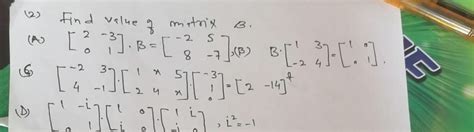 (2) Find value of matrix B.
(A) [2 -3; 0 1] · B = [-2 5; 8 -7], (B) B · [1 3; -2 4] = [1 0; 0 1].
(C) [-2 3; 4 -1] · [1 x 5; 2 4 x] · [-3; 1; 0] = [2 -14]ᵗ
(D) [1 -i; 0 1] · [1 0; i] · [1 i; 0 1], i² = -1